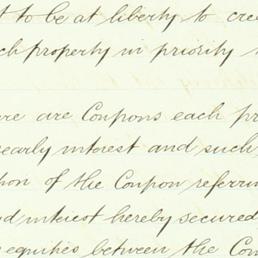 t to be at liberty to cre
ch property in priority
are are Coupons each pr
early interest and such
on of the Coupon referri
d interest hereby secured
equities between the Com